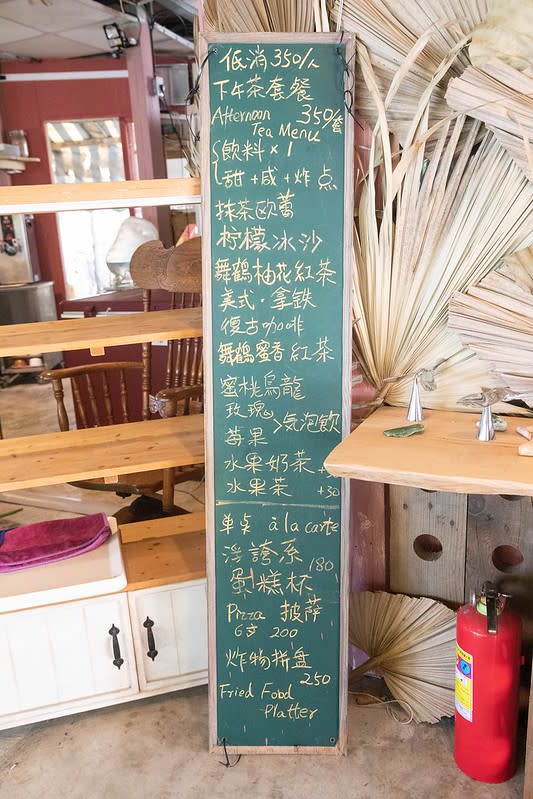 低消350/人
下午茶套餐
Afternoon 350/套
Tea Menu
飲料 × 1
甜 + 咸 + 炸 点
抹茶欧蕾
柠檬冰沙
舞鶴柚花紅茶
美式·拿鐵
復古咖啡
舞鶴蜜香紅茶
蜜桃烏龍
玫瑰
>気泡飲
莓果
水果奶茶
水果茶 +30
单桌 à la carte
浮誇系
蛋糕杯 180
Pizza 披薩
6吋 200
炸物拼盘
250
Fried Food
Platter